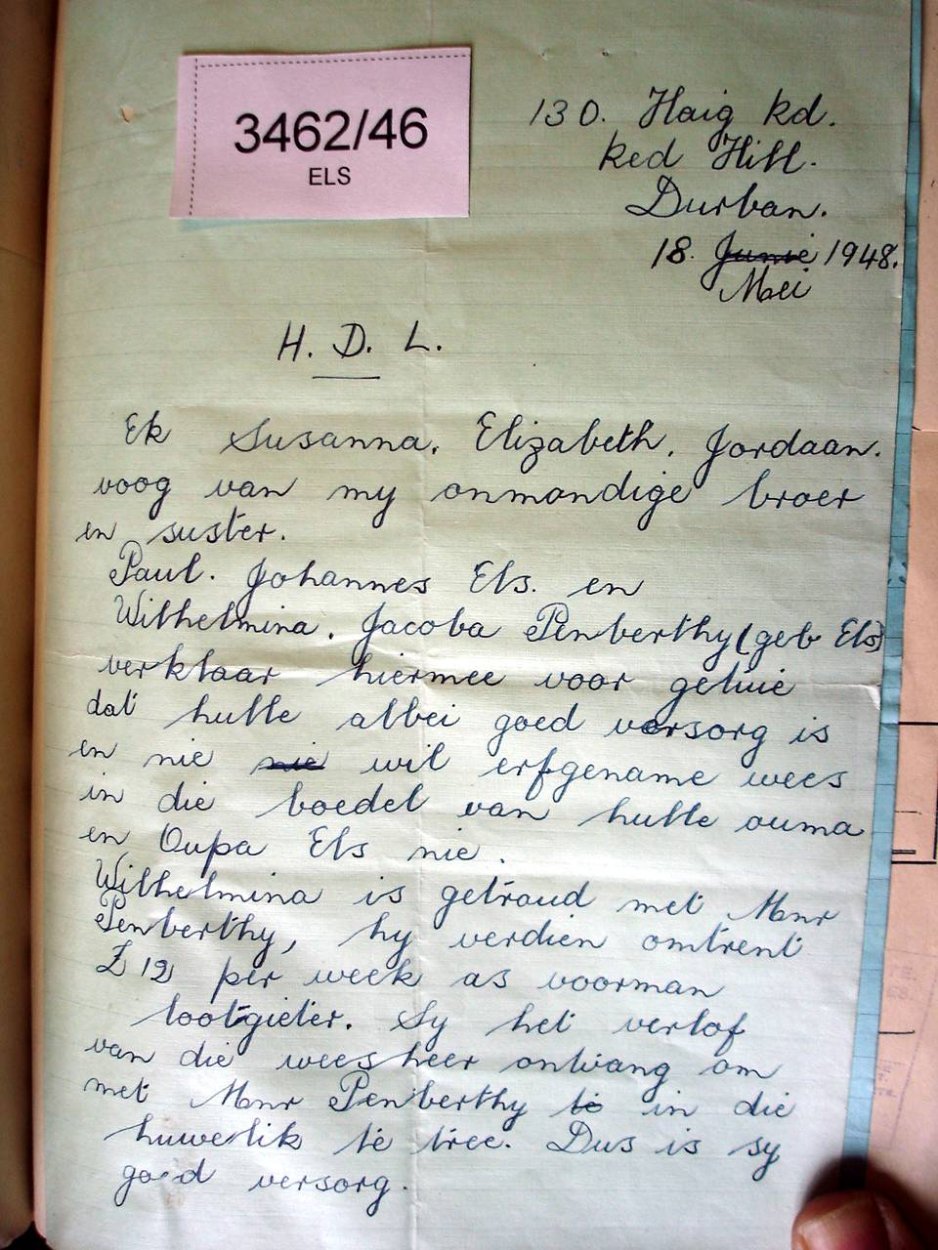 3462/46
ELS
130. Haig Rd.
Red Hill.
Durban.
18. ~~Junie~~ 1948.
Mei
H. D. L.
Ek Susanna. Elizabeth. Jordaan.
voog van my onmondige broer
en suster.
Paul. Johannes Els. en
Wilhelmina. Jacoba Penberthy (geb Els)
verklaar hiermee voor getuie
dat hulle albei goed versorg is
en nie ~~nie~~ wil erfgename wees
in die boedel van hulle ouma
en Oupa Els nie.
Wilhelmina is getroud met Mnr
Penberthy, hy verdien omtrent
£ 12 per week as voorman
lootgieter. Sy het verlof
van die weesheer ontvang om
met Mnr Penberthy ~~te~~ in die
huwelik te tree. Dus is sy
goed versorg.